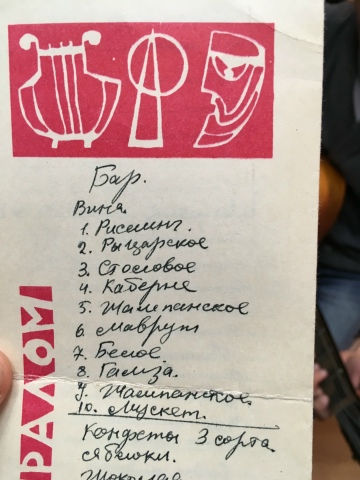 Бар.
Вина.
1. Рислинг.
2. Рыцарское
3. Столовое
4. Каберне
5. Шампанское
6. Маврут
7. Белое.
8. Гамза.
9. Шампанское.
10. Мускет.
Конфеты 3 сорта
яблоки.
РАЛОМ